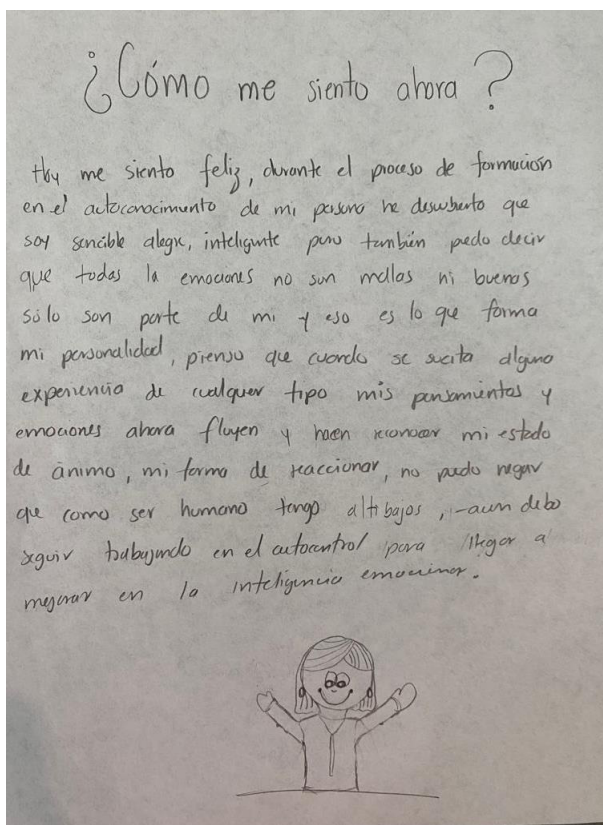 ¿Cómo me siento ahora?
Hoy me siento feliz, durante el proceso de formación
en el autoconocimiento de mi persona he descubierto que
soy sencible alegre, inteligente pero también puedo decir
que todas la emociones no son mallas ni buenas
sólo son parte de mi y eso es lo que forma
mi personalidad, pienso que cuando se sucita alguna
experiencia de cualquer tipo mis pensamientos y
emociones ahora fluyen y hacen reconocer mi estado
de ánimo, mi forma de reaccionar, no puedo negar
que como ser humano tengo altibajos, -aun debo
seguir trabajando en el autocontrol para llegar a
mejorar en la inteligencia emocional.